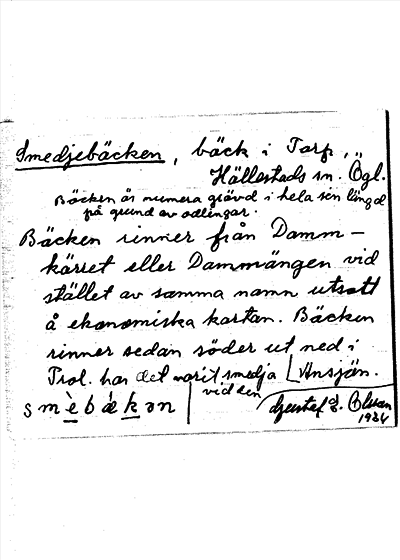 Smedjebäcken, bäck i Torp,
Hällestads sn. Ögl.
Bäcken är numera grävd i hela sin längd
på grund av odlingar.
Bäcken rinner från Damm-
kärret eller Dammängen vid
stället av samma namn utsatt
å ekonomiska kartan. Bäcken
rinner sedan söder ut ned i
Trol. har det varit smedja Ansjön.
vid den
smèbǽkən
Gustaf Olsson
1934